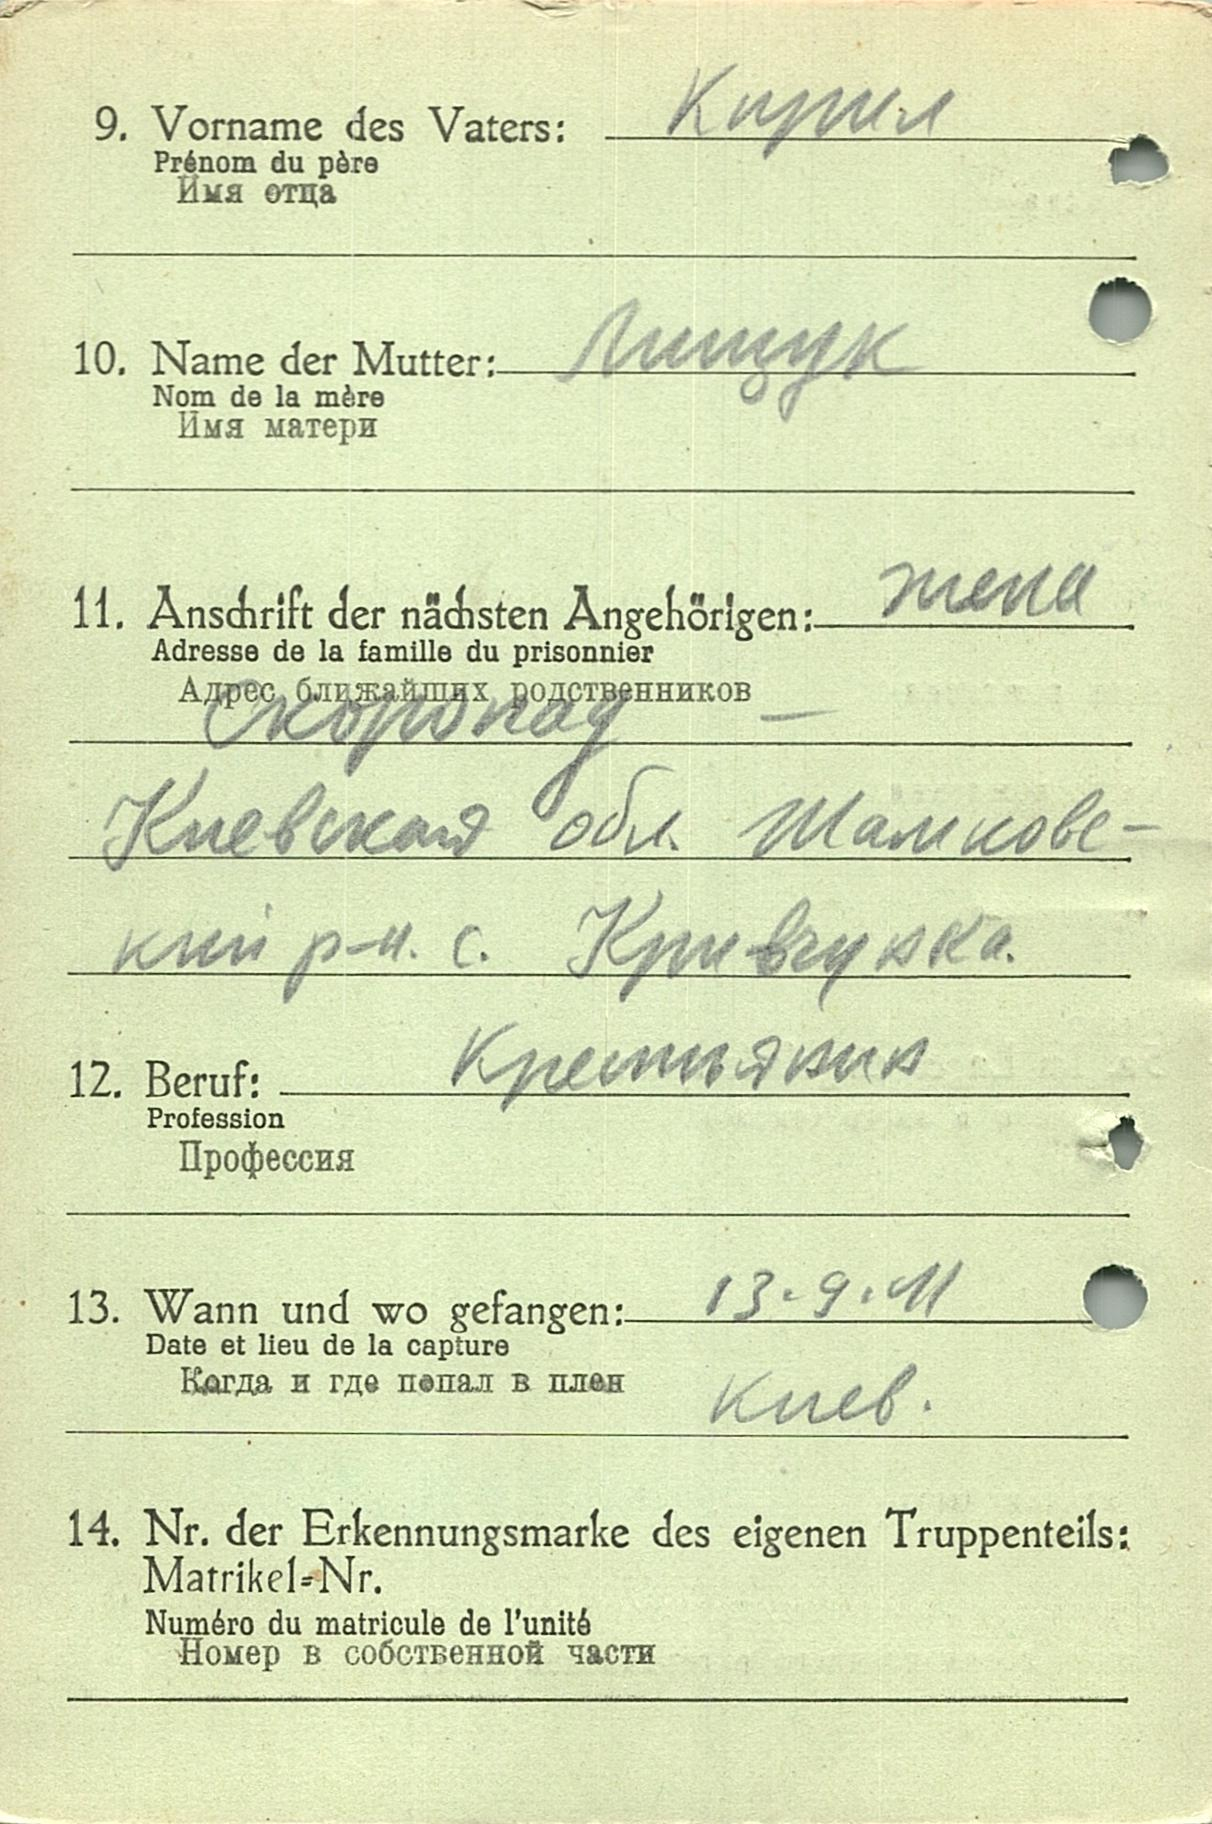 9. Vorname des Vaters: Кирил
Prénom du père
Имя отца
10. Name der Mutter: Лищук
Nom de la mère
Имя матери
11. Anschrift der nächsten Angehörigen: жена
Adresse de la famille du prisonnier
Адрес ближайших родственников
Скоропад –
Киевская обл.
кий р-н. с. Кривчунка.
12. Beruf: Крестьянин
Profession
Профессия
13. Wann und wo gefangen: 13.9.41
Date et lieu de la capture
Когда и где попал в плен
Киев.
14. Nr. der Erkennungsmarke des eigenen Truppenteils:
Matrikel=Nr.
Numéro du matricule de l'unité
Номер в собственной части